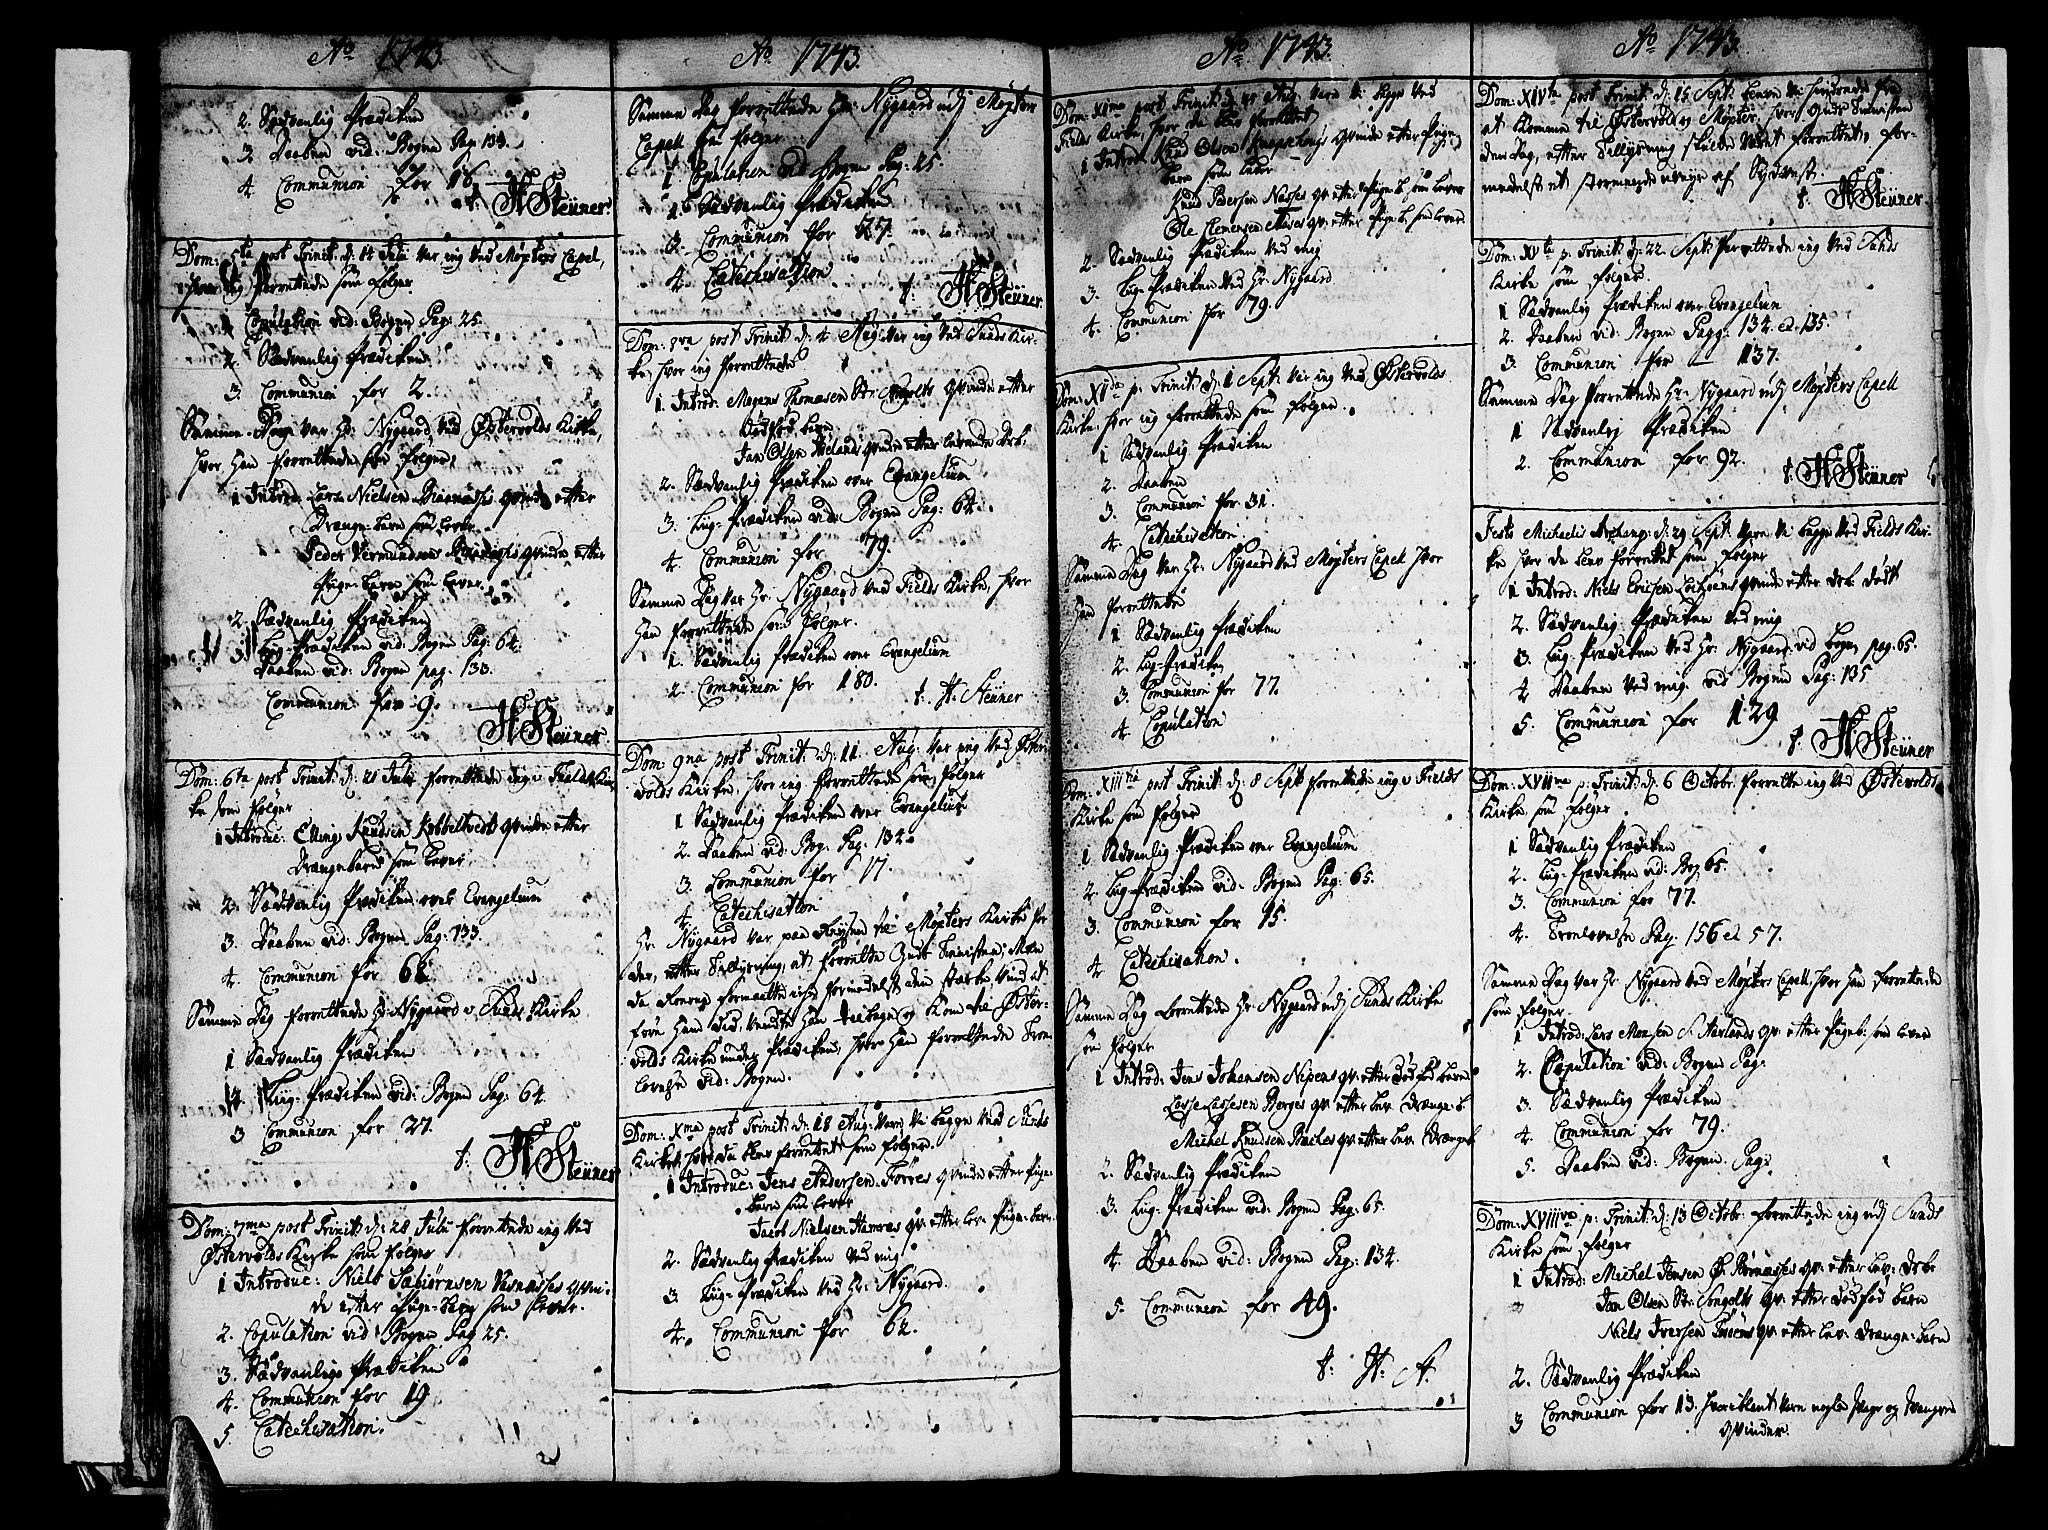 Ao 1743.
2. Sædvanlig Prædiken
3 Daaben vid: Bogen Pag: 133.
4. Communion for 16.
H Steüner.
Dom: 5ta post Trinit: d: 14 Julii var ieg ved Møxters Capel,
hvor ieg forrettede som følger
1 Copulation vid: Bogen Pag: 25.
2. Sædvanlig Prædiken
3 Communion for 2.
Samme Dag var Hr: Nygaard ved Østervolds Kirke,
hvor han forrettede som følger,
1 Introd: Lars Nielsen qvinde efter
Drænge-barn som lever
Peder Vermundsens qvinde efter
Pige-barn som lever
2. Sædvanlig Prædiken
3. Liig-Prædiken vid: Bogen Pag: 64.
Daaben vid: Bogen pag: 133.
Communion for 9.
H Steüner
Dom: 6ta post Trinit: d: 21 Julii forrettede ieg i Fields Kir-
ke som følger
1 Introduc: Elling Knudsen Kobbeltvedt qvinde efter
Drængebarn som lever
2. Sædvanlig Prædiken over Evangelium
3. Daaben vid: Bogen Pag: 133.
4. Communion for 62.
Samme Dag forrettede Hr: Nygaard v. Sunds Kirke
1 Sædvanlig Prædiken
2. Liig-Prædiken vid: Bogen Pag: 64.
3 Communion for 27.
t: H Steüner
Dom: 7ma post Trinit: d: 28 Julii forrettede ieg ved
Østervolds Kirke som følger
1 Introduc: Niels Sæbiørnsen qvin-
de efter Pige-barn som lever.
2. Copulation vid Bogen Pag 25.
3. Sædvanlige Prædiken
4. Communion for 19
5. Catechisation.
Ao 1743.
Samme Dag forrettede Hr: Nygaard udj Møxters
Capell som følger
1. Copulation vid Bogen Pag: 25
2. Sædvanlig Prædiken
3. Communion for 27.
4. Catechisation
t: H Steüner
Dom: 8va post Trinit: d: 4 Aug: var ieg ved Sunds Kir-
ke, hvor ieg forrettede
1. Introd: Mogens Thomæsen qvinde efter
Dødfød barn
Jan Olsen qvinde efter levende Drb:
2. Sædvanlig Prædiken over Evangelium
3. Liig-Prædiken vid: Bogen Pag: 64.
4. Communion for 79.
Samme Dag var Hr: Nygaard ved Fields Kirke, hvor
han forrettede som følger.
1. Sædvanlig Prædiken over Evangelium
2. Communion for 180.
t: H: Steüner
Dom 9na post Trinit: d: 11. Aug: var ieg ved Øster-
volds Kirke, hvor ieg forrettede som følger
1 Sædvanlig Prædiken over Evangelium
2. Daaben vid: Bog: Pag: 134
3. Communion for 17.
4. Catechisation
Hr: Nygaard var paa Reysen til Møxters Kirke for
der, efter Tillysning, at forrette Guds Tienisten, Men
da formedelst den stærke vind
vendte han tilbage og kom til Øster-
volds Kirke under Prædiken, hvor han forrettede Tro-
lovelse vid: Bogen.
Dom: Xma post Trinit: d: 18 Aug: vare vi begge ved Sunds
Kirke hvor da blev forrettet som følger.
1 Introduc: Jens Andersen Forres qvinde efter Pige-
barn som lever
Jacob Nielsen qv: efter lev: Pige-barn
2. Sædvanlig Prædiken ved mig
3. Liig-Prædiken ved Hr: Nygaard.
4. Communion for 62.
Ao 1743.
Dom: XIma post Trinit: d: 25 Aug: vare vi begge ved
Fields Kirke, hvor da blev forrettet
1 Introd: Knud Olsen qvinde efter Pige-
barn som lever
Knud Pedersen qv: efter Pige b. som lever
Ole Clemensen qv: efter Pige b. som lever
2. Sædvanlig Prædiken ved mig
3. Liig-Prædiken ved Hr: Nygaard
4. Communion for 79.
Dom: p: Trinit: d: 1 Sept: var ieg ved Østervolds
Kirke, hvor ieg forrettede som følger.
1 Sædvanlig Prædiken
2. Daaben
3. Communion for 31.
4. Catechisation.
Samme Dag var Hr: Nygaard ved Møxters Capell hvor
han forrettede
1 Sædvanlig Prædiken
2. Liig-Prædiken
3. Communion for 77.
4. Copulation
Dom: XIIItia post Trinit: d: 8 Sept forrettede ieg i Fields
Kirke som følger
1 Sædvanlig Prædiken over Evangelium
2. Liig-Prædiken vid: Bogen Pag: 65.
3. Communion for 15.
4. Catechisation.
Samme Dag forrettede Hr: Nygaard udj Sunds Kirke
som følger
1 Introd: Jens Johansen Nipens qv: efter Dødfød barn
Lasse Lassesen Berges qv: efter lev: Drænge-b.
Michel Knudsen qv: efter lev: Drængeb
2. Sædvanlig Prædiken
3. Liig-Prædiken vid: Bogen Pag: 65.
4. Daaben vid: Bogen Pag: 134.
5. Communion for 49.
t: H: A.
Ao 1743.
Dom: XIVta post Trinit: d: 15. Sept: bleve vi hindrede fra
at komme til Østervold og Møxter, hvor Guds Tienisten
den Dag, efter Tillysning skulde været forrettet, for-
medelst et stormende veyr af Sydvest.
t. H Steüner
Dom: XVta p: Trinit: d: 22 Sept: forrettede ieg ved Sunds
Kirke som følger.
1 Sædvanlig Prædiken over Evangelium
2. Daaben vid: Bogen Pagg: 134. et 135.
3. Communion for 137.
Samme Dag forrettede Hr: Nygaard udj Møxters Capell
1 Sædvanlig Prædiken
2. Communion for 92.
t. H Steüner
Festo Michaelis Archang: d: 29 Sept: vare vi begge ved Fields Kir-
ke hvor da blev forrettet som følger
1 Introd: Niels Ericsen qvinde efter Drb: Dødt
2. Sædvanlig Prædiken ved mig
3. Liig-Prædiken ved Hr: Nygaard vid Bogen pag: 65.
4 Daaben ved mig. vid Bogen Pag: 135
5. Communion for 129
t. H Steüner
Dom: XVIIma p: Trinit: d: 6 Octobr: forrettede ieg ved Østervolds
Kirke som følger
1 Sædvanlig Prædiken
2. Liig-Prædiken vid: Bog 65.
3. Communion for 77.
4. Trolovelse Pag: 156 et 57.
Samme Dag var Hr: Nygaard ved Møxters Capell, hvor han forrettede
som følger.
1 Introd: Lars Monsen qv: efter Pigeb: som lever
2. Copulation vid: Bogen Pag:
3. Sædvanlig Prædiken
4. Communion for 79.
5. Daaben vid: Bogen Pag:
Dom: XVIIIva p: Trinit: d: 13 Octobr: forrettede ieg udj Sunds
Kirke som følger
1 Introd: Michel Jensen qv: efter lev: Drb:
Jan Olsen qv: efter Dødfød barn
Niels Iversen qv: efter lev: Drænge-barn
2. Sædvanlig Prædiken
3 Communion for 13. hveriblant vare nogle svage og
qvinder.